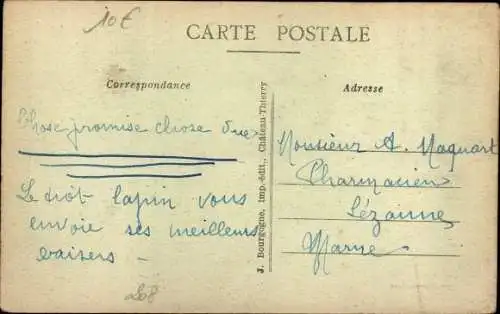 10€
CARTE POSTALE
Correspondance
Adresse
Chose promise chose due
Le lapin vous
envoie ses meilleurs
baisers -
J. Bourgogne, imp.-édit., Château-Thierry
Monsieur A. Maquart
Pharmacien
Sézanne
Marne